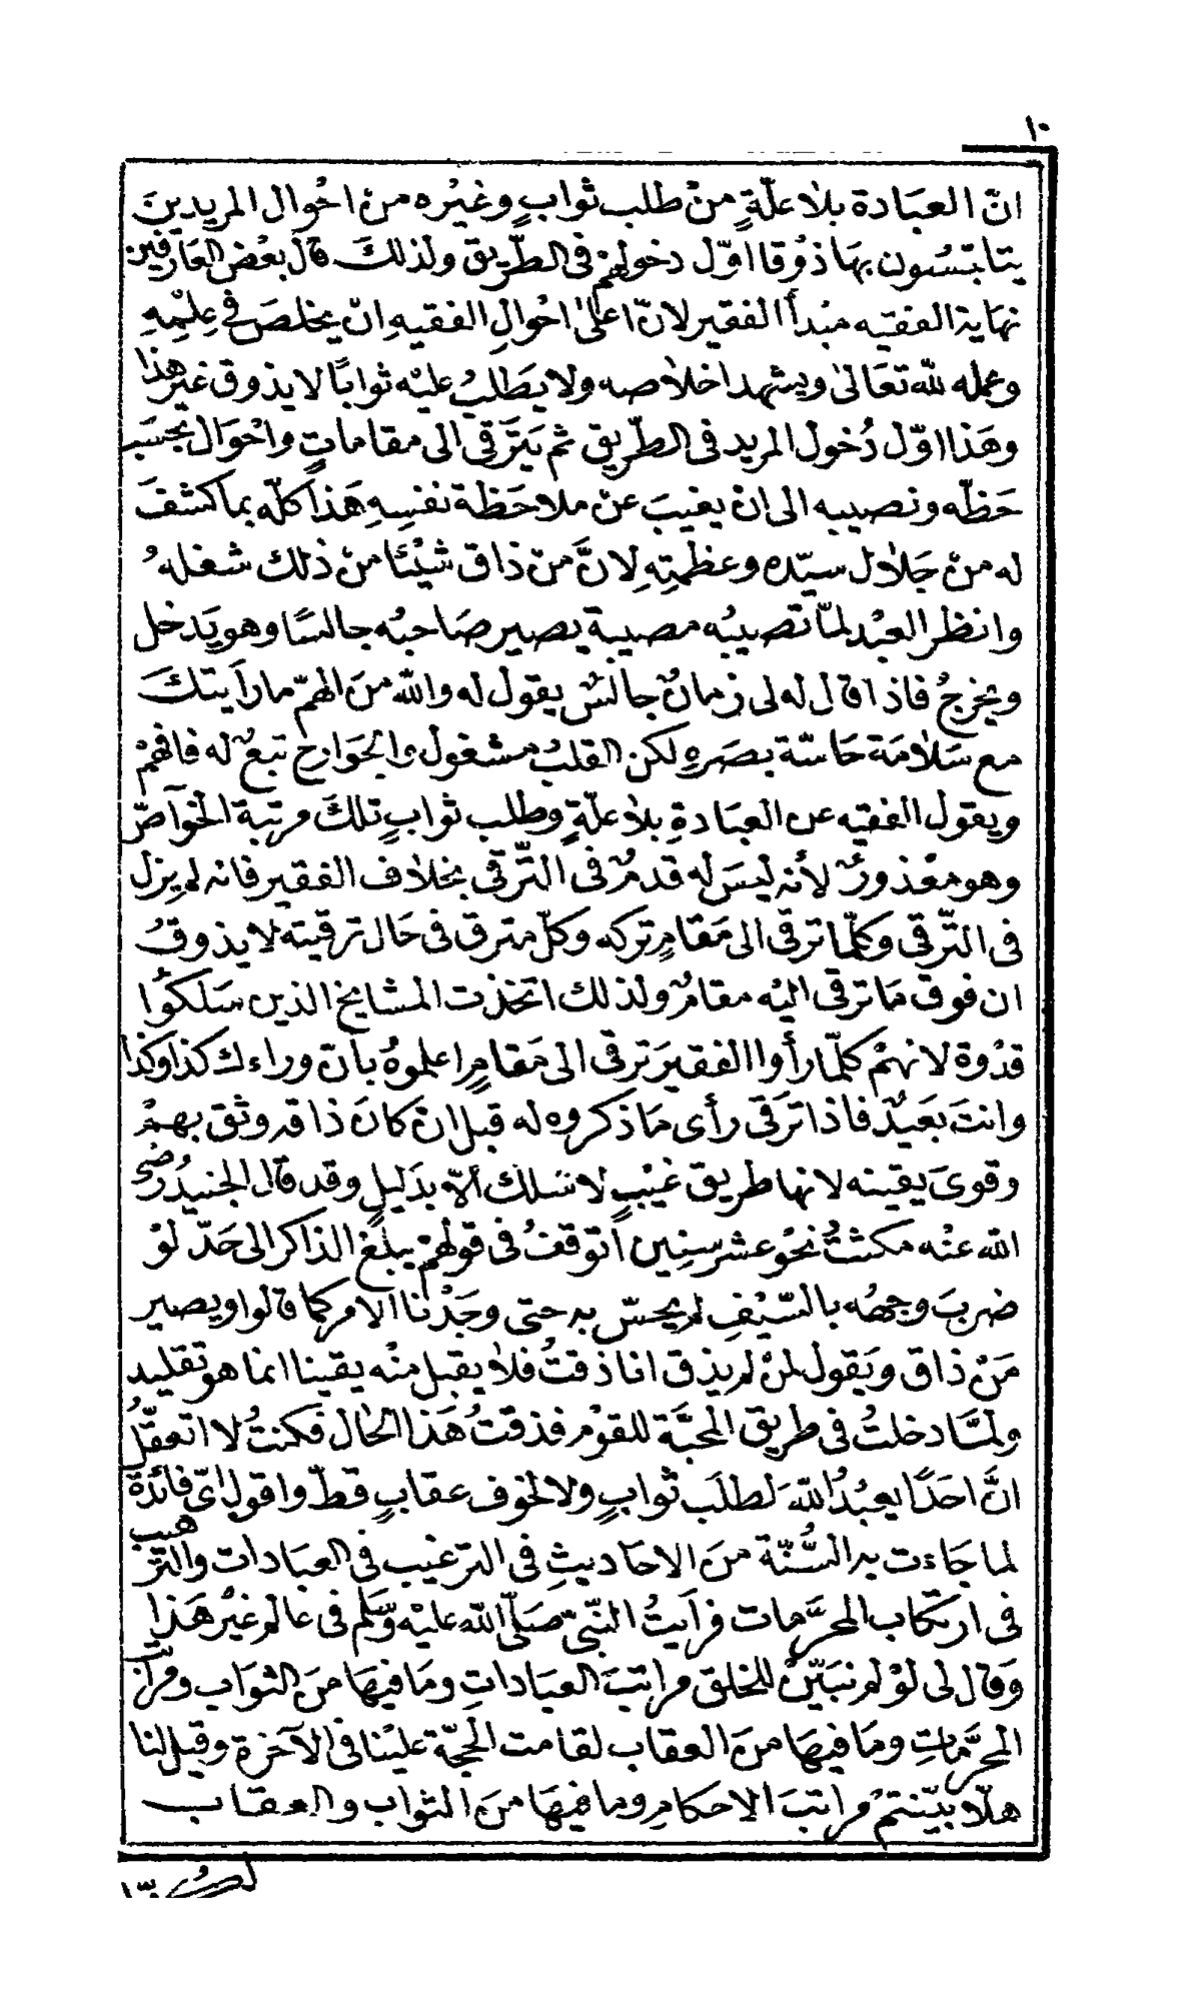 ١٠
انّ العبَادة بلاعلّةٍ منْ طلب ثوابٍ وغيْره منْ احْوال المريدينَ
يتلبّسُون بهَا ذوْقا اوّل دخولهمْ فى الطّريق ولذلكَ قالَ بعْض العارفين
نهاية الفقيه مبْدأ الفقير لانّ اعلىٰ احْوالِ الفقيهِ انْ يخلصَ فى عِلْمِهِ
وعمله للّه تعَالىٰ ويشهد اخلاصه ولا يطلبُ عليْه ثوابًا لا يذوق غير هذا
وهَذا اوّل دُخول المريد فى الطّريق ثم يَترَقىّ الى مقاماتٍ واحْوَال بحسَب
حَظّه ونصيبه الى انْ يغيبَ عنْ ملاحَظة نفسِهِ هَذا كلّه بما كشفَ
له منْ جَلال سيّده وعظمتِهِ لانَّ منْ ذاق شيْئا منْ ذلك شغلهُ
وانظر العبْد لمّا تصيبُه مصيبة يصير صَاحبُه جالسًا وهو يَدخل
ويخرجُ فاذا قال له لى زمانٌ جالسٌ يقول له واللّه منَ الهمّ ما رأيتكَ
مع سَلامَة حَاسّة بصَرهِ لكن القلبُ مشغول والجَوارح تبعٌ له فافهمْ
ويقول الفقيه عن العبَادةِ بلاعلّةٍ وطلب ثوابٍ تلكَ مرتبة الخوآصّ
وهو معْذورٌ لأنه ليسَ له قدمٌ فى التّرقىّ بخلاف الفقير فانه لم يزل
فى التّرقىّ وكلّما ترقى الى مَقامٍ تركه وكلّ مترق فى حَال ترقيته لا يذوقُ
ان فوق مَا ترقى اليْه مقامٌ ولذلك اتخذت المشايخ الذين سَلكوُا
قدْوة لانهمْ كلّما رأوا الفقيرَ ترقى الى مَقامٍ اعلموهُ بأن وراءك كذا وكذا
وانتَ بعَيدٌ فاذا ترَقى رأى مَا ذكروه له قبل ان كانَ ذاقه وثق بهمْ
وقوىَ يقينه لانها طريق غيْبٍ لا تسلك الاّ بدَليلٍ وقد قال الجنيدُ رضى
اللّه عنْه مكثتُ نحْو عشر سنِين أتوقفُ فى قولهمْ يبلغ الذاكر الى حَدّ لوْ
ضربَ وجهُه بالسّيْفِ لم يحسّ به حتى وجَدْنا الامر كما قالوا ويصير
مَنْ ذاق ويَقول لمنْ لم يذق انا ذقتُ فلا يقبل منْه يقينا انما هو تقليد
ولمَّا دخلتُ فى طريق المحبَّة للقوْم فذقتُ هَذا الحال فكنتُ لا اتعقّلُ
انَّ احَدًا يعبُدُ اللّهَ لطلَب ثوابٍ ولا لخوف عقابٍ قطّ واقول اىّ فائدَة
لما جَاءت به السُّنّة منَ الاحَاديثِ فى الترغيب فى العبَادات والترهيب
فى ارتكاب المحرَّمات فرأيتُ النّبىّ صَلّى اللّه عليْه وَسَلّم فى عالمٍ غيْر هَذا
وَقال لى لوْ لم نبَيّنْ للخلق مراتبَ العبَاداتِ ومَا فيهَا منَ الثوَاب ومراتب
المحرّماتِ ومَا فيهَا منَ العقاب لقامت الحجّة عليْنا فى الآخرة وقيل لنا
هلّا بيّنتمْ مراتبَ الاحكام وما فيهَا منَ الثواب والعقاب